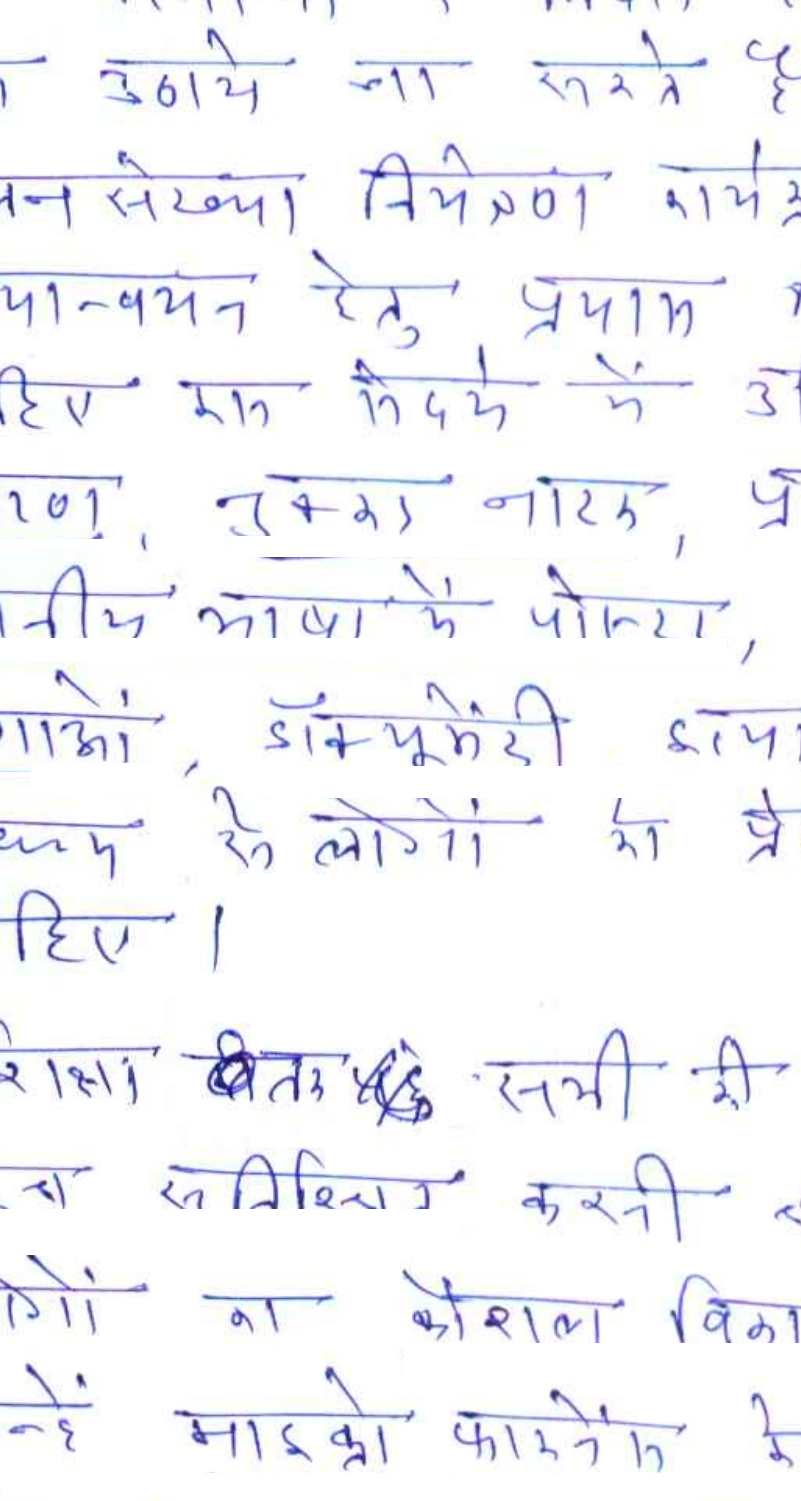 उठाये जा सकते है
जनसंख्या नियंत्रण कार्यक्र
यान्वयन हेतु प्रयास
हिए इस संदर्भ में
रण, नुक्कड नाटक, प्र
नीय भाषा में पोस्टर,
गाओं, डॉक्यूमेंट्री
ध्यम से लोगों को प्रे
हिए।
शिक्षा तक सभी की
सुनिश्चित करनी
लोगों का कौशल विका
न्हें माइक्रो फाइनेंस के